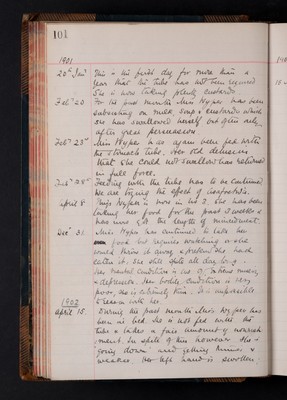 101
1901
20th Jan'y This is the first day for more than a
year that the tube has not been required
She is now taking plenty custards.
Feb' 20 For the past month Miss Hyper has been
subsisting on milk soup & custards which
she has swallowed herself but often only
after great persuasion.
Feb' 23rd Miss Hyper has again been fed with
the stomach tube. Her old delusion
that she could not swallow has returned
in full force.
Feb' 28th Feeding with the tube has to be continued
We are trying the effect of
April 8 Miss Hyper is now in No 2. She has been
taking her food for the past 2 weeks &
has now got the length of mincedmeat.
Dec' 30 Miss Hyper has continued to take her
food but requires watching or she
would throw it away & pretend she had
eaten it. She still spits all day long.
Her mental condition is one of intense misery
& depression. Her bodily condition is very
poor, she is extremely thin. It is impossible
to reason with her.
1902
April 15. During the past month Miss Hyper has
been in bed. She is not fed with the
tube & takes a fair amount of nourish
-ment. In spite of this however she is
going down and getting thinner &
weaker. Her left hand is swollen